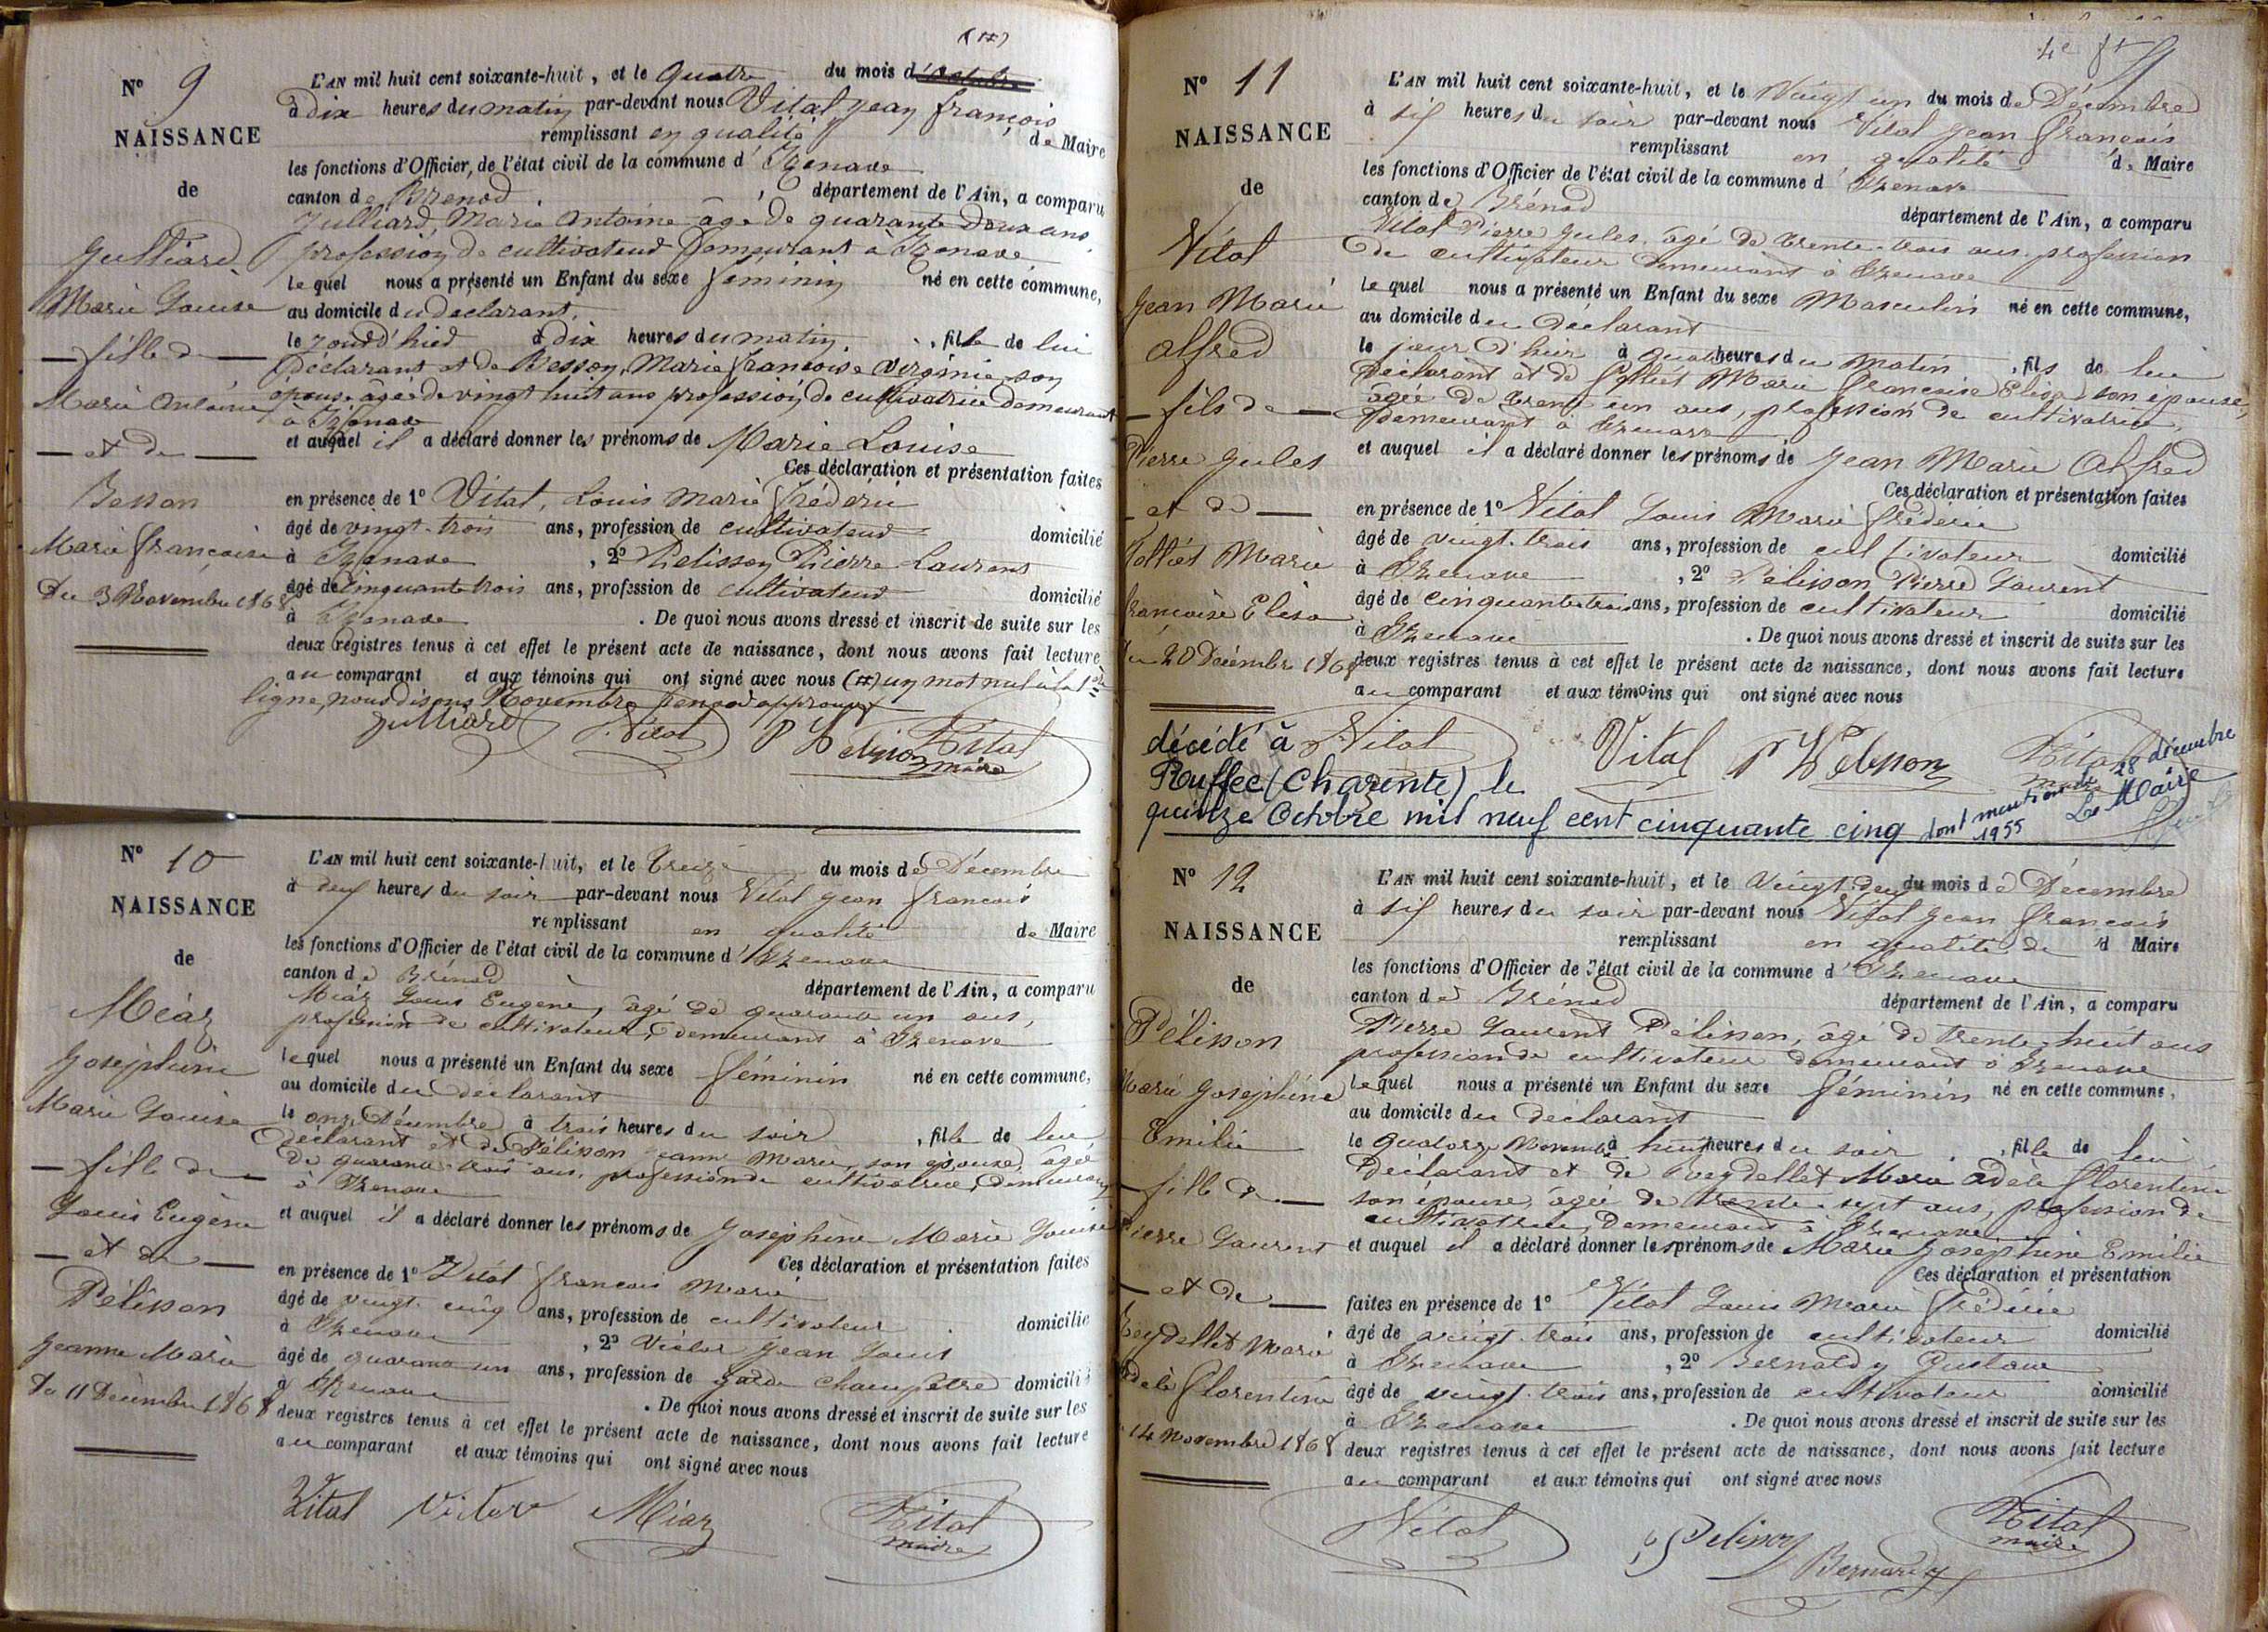 (#)
N° 9
NAISSANCE
de
Julliard
Marie Louise
fille de
Marie Antoine
et de
Besson
Marie françoise
Du 3 Novembre 1868
L'AN mil huit cent soixante-huit, et le Quatre du mois d'octobre
à dix heures du matin par-devant nous Vital Jean françois
remplissant en qualité de Maire
les fonctions d'Officier, de l'état civil de la commune d'Izenave
canton de Brenod, département de l'Ain, a comparu
Julliard, Marie Antoine âgé de quarante deux ans,
profession de cultivateur Demeurant à Izenave
lequel nous a présenté un Enfant du sexe féminin né en cette commune,
au domicile du Déclarant,
le jour d'hier à dix heures du matin, fille de lui
Déclarant et de Besson, Marie françoise Virginie son
épouse âgée de vingt huit ans profession de cultivatrice demeurant
à Izenave
et auquel il a déclaré donner les prénoms de Marie Louise
Ces déclaration et présentation faites
en présence de 1° Vital, Louis Marie fréderic
âgé de vingt-trois ans, profession de cultivateur domicilié
à Izenave, 2° Pelisson Pierre Laurent
âgé de cinquante trois ans, profession de cultivateur domicilié
à Izenave. De quoi nous avons dressé et inscrit de suite sur les
deux registres tenus à cet effet le présent acte de naissance, dont nous avons fait lecture
au comparant et aux témoins qui ont signé avec nous (#) un mot nul à la 1ère
ligne, nous disons Novembre
Julliard Vital P Pelisson Vital
maire
N° 10
NAISSANCE
de
Méaz
Josephine
Marie Louise
fille de
Louis Eugène
et de
Pélisson
Jeanne Marie
Du 11 Décembre 1868
L'AN mil huit cent soixante-huit, et le Treize du mois de Décembre
à deux heures du soir par-devant nous Vital Jean françois
remplissant en qualité de Maire
les fonctions d'Officier de l'état civil de la commune d'Izenave
canton de Brénod département de l'Ain, a comparu
Méaz Louis Eugène, âgé de quarante un ans,
profession de cultivateur, demeurant à Izenave
lequel nous a présenté un Enfant du sexe féminin né en cette commune,
au domicile du déclarant
le onze Décembre à trois heures du soir, fille de lui
déclarant et de Pélisson Jeanne Marie, son épouse, âgée
de quarante trois ans, profession de cultivatrice, demeurant
à Izenave
et auquel il a déclaré donner les prénoms de Josephine Marie Louise
Ces déclaration et présentation faites
en présence de 1° Vital françois Marie
âgé de vingt cinq ans, profession de cultivateur domicilié
à Izenave, 2° Victor Jean Louis
âgé de quarante un ans, profession de garde champêtre domicilié
à Izenave. De quoi nous avons dressé et inscrit de suite sur les
deux registres tenus à cet effet le présent acte de naissance, dont nous avons fait lecture
au comparant et aux témoins qui ont signé avec nous
Vital Victor Méaz Vital
maire
4e
N° 11
NAISSANCE
de
Vital
Jean Marie
Alfred
fils de
Pierre Jules
et de
Marie
françoise Elisa
20 Décembre 1868
L'AN mil huit cent soixante-huit, et le Vingt un du mois de Décembre
à six heures du soir par-devant nous Vital Jean françois
remplissant en qualité de Maire
les fonctions d'Officier de l'état civil de la commune d'Izenave
canton de Brénod département de l'Ain, a comparu
Vital Pierre Jules, âgé de trente-trois ans, profession
de cultivateur demeurant à Izenave
lequel nous a présenté un Enfant du sexe Masculin né en cette commune,
au domicile du déclarant
le jour d'hier à quatre heures du matin, fils de lui
déclarant et de Marie françoise Elisa son épouse,
âgée de trente un ans, profession de cultivatrice,
demeurant à Izenave
et auquel il a déclaré donner les prénoms de Jean Marie Alfred
Ces déclaration et présentation faites
en présence de 1° Vital Louis Marie fréderic
âgé de vingt-trois ans, profession de cultivateur domicilié
à Izenave, 2° Pélisson Pierre Laurent
âgé de cinquante trois ans, profession de cultivateur domicilié
à Izenave. De quoi nous avons dressé et inscrit de suite sur les
deux registres tenus à cet effet le présent acte de naissance, dont nous avons fait lecture
au comparant et aux témoins qui ont signé avec nous
Vital Vital P Pelisson Vital
maire
décédé à
Ruffec (Charente) le
quinze Octobre mil neuf cent cinquante cinq dont mention le 28 décembre
1955 Le Maire
N° 12
NAISSANCE
de
Pélisson
Marie Josephine
Emilie
fille de
Pierre Laurent
et de
Reydellet Marie
Adèle florentine
14 Novembre 1868
L'AN mil huit cent soixante-huit, et le Vingt-deux du mois de Décembre
à six heures du soir par-devant nous Vital Jean françois
remplissant en qualité de d Maire
les fonctions d'Officier de l'état civil de la commune d'Izenave
canton de Brénod département de l'Ain, a comparu
Pierre Laurent Pélisson, âgé de trente-huit ans
profession de cultivateur demeurant à Izenave
lequel nous a présenté un Enfant du sexe féminin né en cette commune,
au domicile du déclarant
le quatorze Novembre à huit heures du soir, fille de lui
déclarant et de Reydellet Marie Adèle florentine
son épouse, âgée de trente-sept ans, profession de
cultivatrice, demeurant à Izenave
et auquel il a déclaré donner les prénoms de Marie Josephine Emilie
Ces déclaration et présentation
faites en présence de 1° Vital Louis Marie fréderic
âgé de vingt-trois ans, profession de cultivateur domicilié
à Izenave, 2° Bernardy Gustave
âgé de vingt-trois ans, profession de cultivateur domicilié
à Izenave. De quoi nous avons dressé et inscrit de suite sur les
deux registres tenus à cet effet le présent acte de naissance, dont nous avons fait lecture
au comparant et aux témoins qui ont signé avec nous
Vital P Pelisson Bernardy Vital
maire